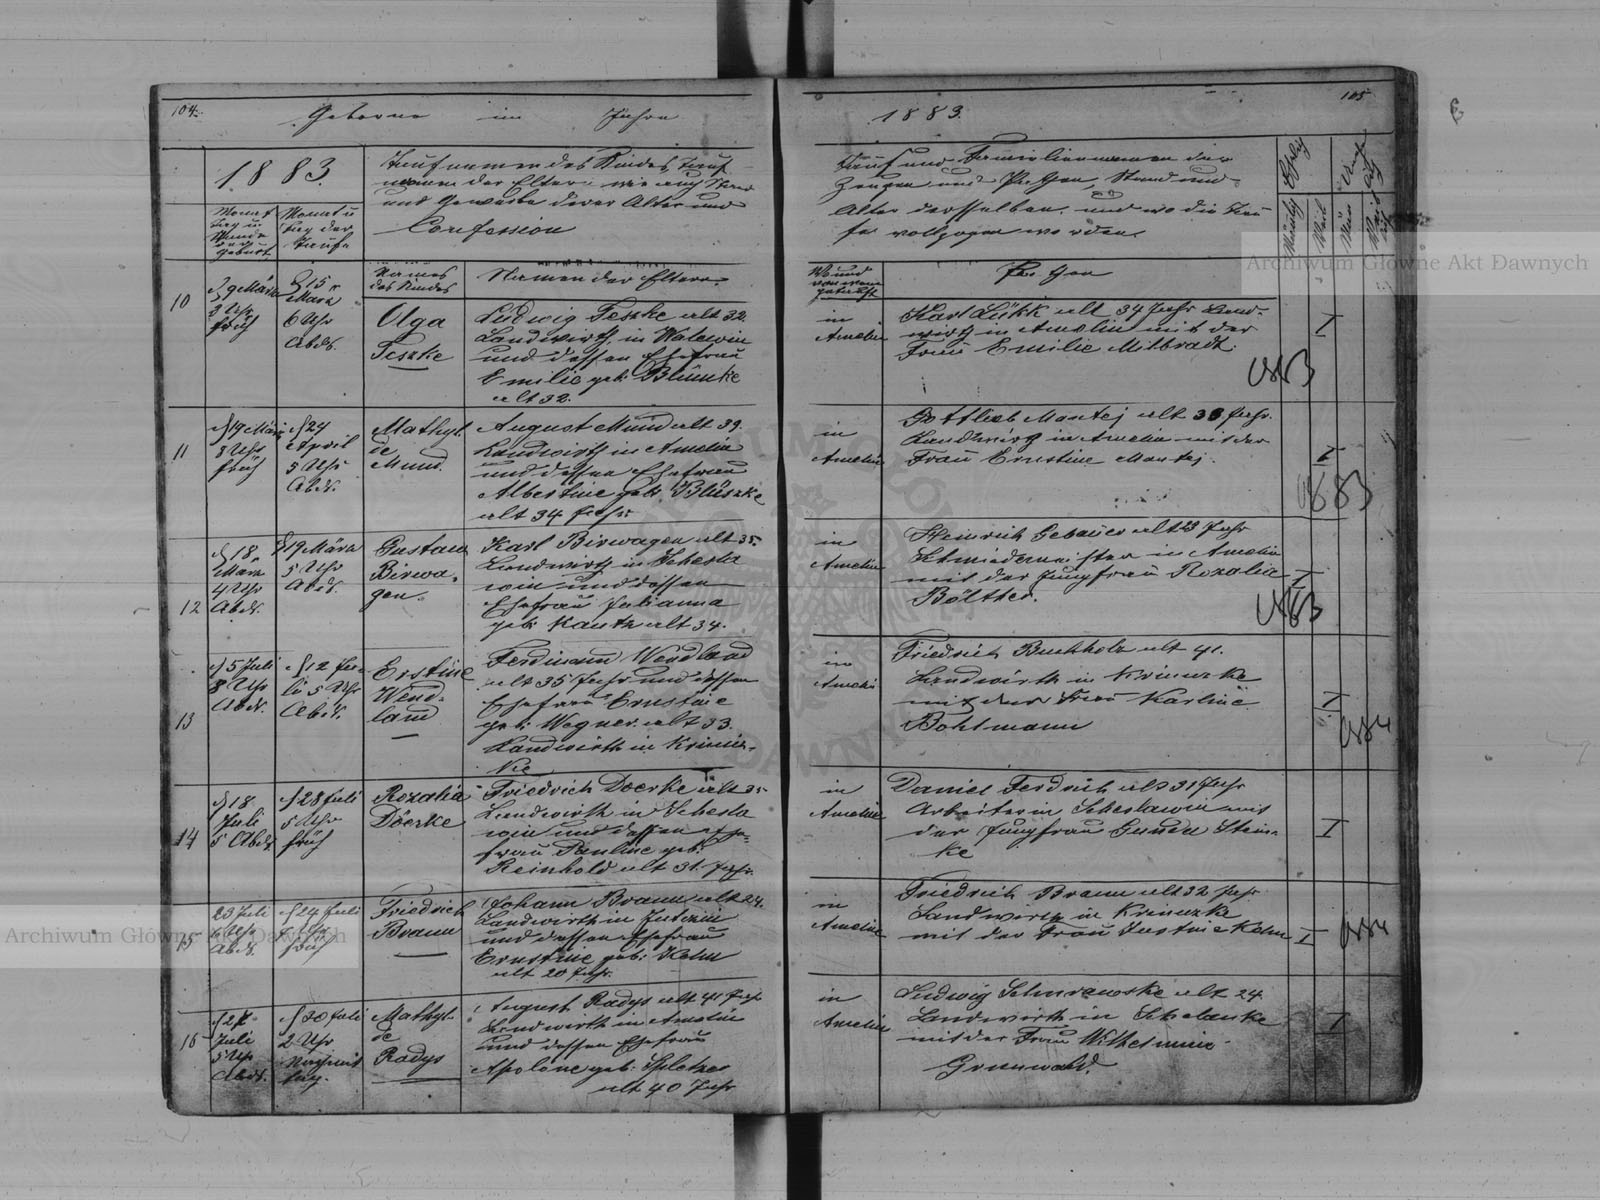 104.
Geborne im Jahre
1883.
Taufnamen des Kindes, Tauf-
namen der Eltern wie auch Stand
und Gewerbe derer Alter und
Confession
Monat
Tag u
Stunde
der
Geburt
Monat u
Tag der
Taufe
Names
des Kindes
Namen der Eltern.
10
9 März
3 Uhr
früh
15
März
6 Uhr
Abds.
Olga
Teszke
Ludwig Teszke alt 32.
Landwirth, in Walewin
und dessen Ehefrau
Emilie geb. Blümke
alt 32.
11
19 März
3 Uhr
früh
24
April
5 Uhr
Abds.
Mathyl-
de
Mund.
August Mund alt 39.
Landwirth in Amelin
und dessen Ehefrau
Albestine geb. Blüszke
alt 34 Jahr
12
18.
März
4 Uhr
Abds.
19 März
5 Uhr
Abds.
Gustaw
Birwa-
gen.
Karl Birwagen alt 35.
Landwirth in Schesla
win und dessen
Ehefrau Julianna
geb. Kautz alt 34.
13
5 Juli
8 Uhr
Abds.
12 Ju-
li 5 Uhr
Abds.
Erstine
Wend-
land
Ferdinann Wendland
alt 35 Jahr und dessen
Ehefrau Ernstine
geb. Wegner alt 33.
Landwirth in Krinic-
ke
14
18
Juli
5 Abds
28 Juli
5 Uhr
früh
Rozalia
Doerke
Friedrich Doerke alt 35
Landwirth in Schesla
win und dessen Ehe-
frau Pauline geb.
Reinhold alt 31. Jahr.
15
23 Juli
6 Uhr
Abds.
24 Juli
Uhr
früh
Friedrich
Braun
Johann Braun alt 24.
Landwirth in Jutrzin
und dessen Ehefrau
Ernstine geb. Kelm
alt 20 Jahr.
16
Juli
5 Uhr
Abds.
Juli
2 Uhr
Nachmit
tag.
Mathyl-
de
Radys
August Radys alt 41 Jahr
Landwirth in Amelin
und dessen Ehefrau
Apolone geb. Spletzer
alt 40 Jahr
105
1883.
Tauf und Familiennamen der
Zeugen und Pathen, Stand und
Alter dersselben. und wo die Tau
fe vollzogen worden.
Wo und
von wem
getauft
Pathen
Männlich
Weib
in
Amelin
Karl Lükk alt 34 Jahr Land-
wirth in Amelin mit der
Frau Emilie Milbradt.
I
1883
in
Amelin
Gottlieb Mantej alt 36 Jahr.
Landwirth in Amelin mit der
Frau Ernstine Mantej.
I
1883
in
Amelin
Heinrich Gebauer alt 23 Jahr
Schmiedemeister in Amelin
mit der Jungfrau Rozalie
Bölther.
I
1883
in
Amelin
Friedrich Buchholz alt 41.
Landwirth in Krinicke
mit der Frau Karline
Bohlmann
I
1884
in
Amelin
Daniel Ferdrich alt 31 Jahr
Arbeiter in Scheslawin mit
der Jungfrau Gunda Stein-
ke
I
in
Amelin
Friedrich Braun alt 32 Jahr
Landwirth in Krinicke
mit der Frau Justine Kelm
I
1884
in
Amelin
Ludwig Schurawske alt 24
Landwirth in
mit der Frau Wilhelmine
Grunwald.
I
Archiwum Główne Akt Dawnych
Archiwum Główne Akt Dawnych